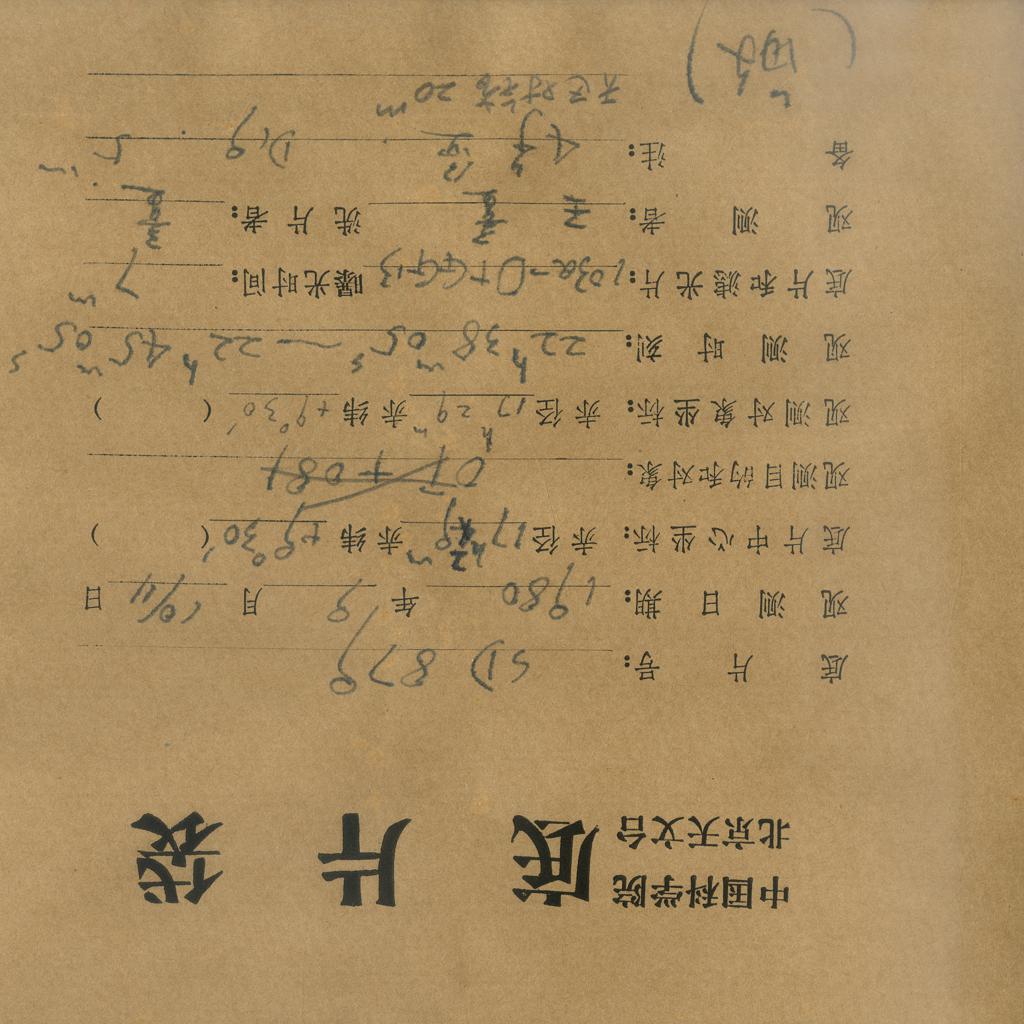 中国科学院
北京天文台 底片袋
底片号: SD 879
观测日期: 1980 年 9 月 10/11 日
底片中心坐标: 赤径 17 赤纬 +9°30′ ( )
观测目的和对象: OT+081
观测对象坐标: 赤径 17ʰ29ᵐ 赤纬 +9°30′ ( )
观测时刻: 22ʰ38ᵐ05ˢ — 22ʰ45ᵐ05ˢ
底片和滤光片: 103a-O+GG13 曝光时间: 7ᵐ
观测者: 洗片者:
备注: D19 5ᵐ
天区对 20ᵐ